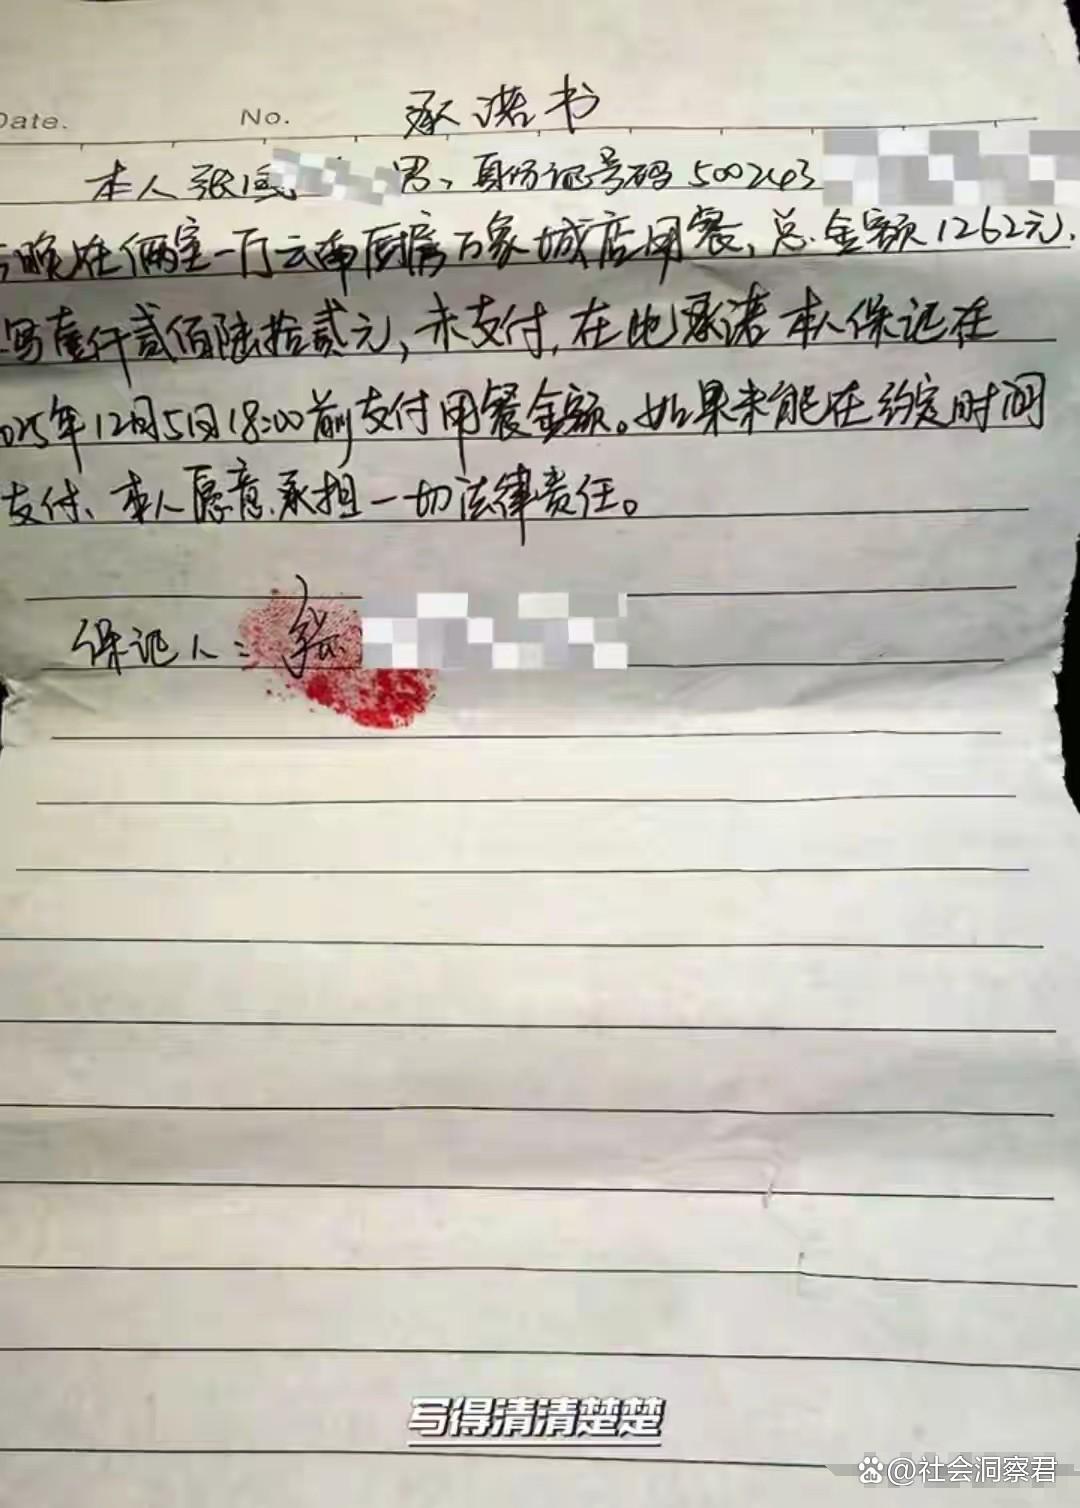 Date. No. 承诺书
本人张 男、身份证号码500243
晚在俩室一厅云南厨房万象城店用餐，总金额1262元.
写壹仟贰佰陆拾贰元，未支付，在此承诺本人保证在
025年12月5日18:00前支付用餐金额。如果未能在约定时间
支付、本人愿意承担一切法律责任。
保证人：张
写得清清楚楚
@社会洞察君